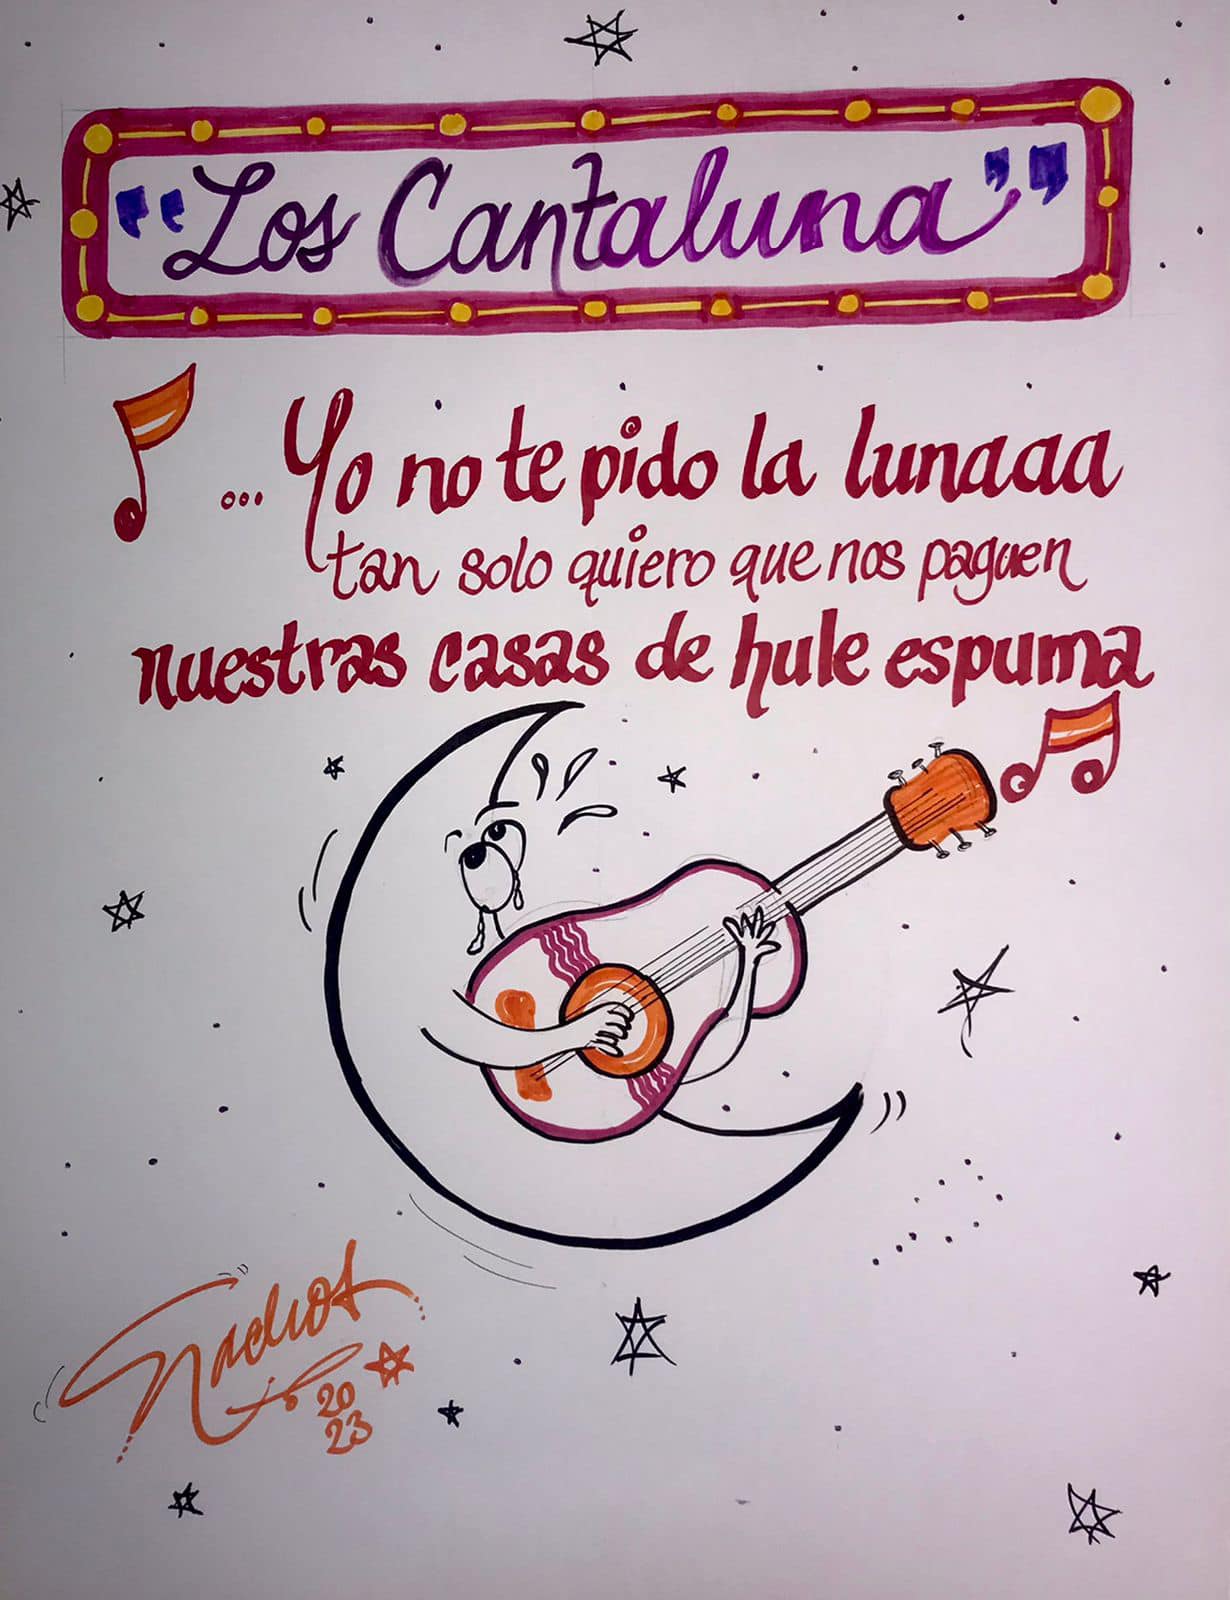 "Los Cantaluna"
... Yo no te pido la lunaaa
tan solo quiero que nos paguen
nuestras casas de hule espuma
Nachos
20
23